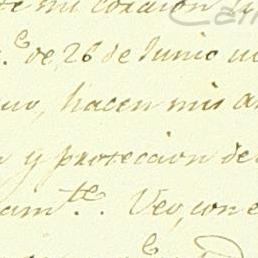 te mi corazon
de 26 de Junio
hacen mis a
y proteccion de
am.te. Veo, con e